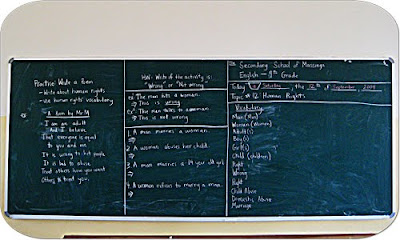 Practise: Write a Poem
- Write about human rights
- Use human rights' vocabulary
A Poem by Mr. M
I am an adult
And I believe
That everyone is equal
to you and me
It is wrong to hurt people
It is bad to abuse
Treat others how you want
Others to treat you.
H.W: Write if the activity is:
"Wrong" or "Not wrong"
ex: The man hits a woman.
→ This is wrong
ex: The man talks to a woman.
→ This is not wrong
1. A man marries a woman.
→
2. A woman abuses her child.
→
3. A man marries a 14 year old girl.
→
4. A woman refuses to marry a man.
→
Secondary School of Massinga
English - 9th Grade
Today is Saturday, the 12th of September 2009
Topic # 12 Human Rights
Vocabulary
Man (Men)
Woman (Women)
Adult(s)
Boy(s)
Girl(s)
Child (children)
Right
Wrong
Right
Child Abuse
Domestic Abuse
Marriage